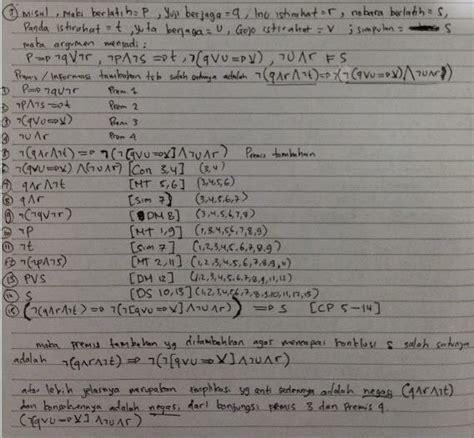 ① misal, Maki berlatih = P, Yuji berjaga = q, Inu istirahat = r, nobara berlatih = S,
Panda istirahat = t, Yuta berjaga = U, Gojo istirahat = V ; simpulan = S
maka argumen menjadi:
P ⇒ ¬q∨¬r, ¬P∧¬S ⇒ t, ¬(q∨U ⇒ V), ¬U∧r ⊨ S
Premis / informasi tambahan tsb salah satunya adalah ¬(q∧r∧¬t) ⇒ ¬(¬(q∨U ⇒ V)∧¬U∧r)
① P ⇒ ¬q∨¬r Prem 1
② ¬P∧¬S ⇒ t Prem 2
③ ¬(q∨U ⇒ V) Prem 3
④ ¬U∧r Prem 4
⑤ ¬(q∧r∧¬t) ⇒ ¬(¬[q∨U ⇒ V]∧¬U∧r) Premis tambahan
⑥ ¬(q∨U ⇒ V)∧(¬U∧r) [Con 3,4] (3,4)
⑦ q∧r∧¬t [MT 5,6] (3,4,5,6)
⑧ q∧r [Sim 7] (3,4,5,6,7)
⑨ ¬(¬q∨¬r) [DM 8] (3,4,5,6,7,8)
⑩ ¬P [MT 1,9] (1,3,4,5,6,7,8,9)
⑪ ¬t [Sim 7] (1,2,3,4,5,6,7,8,9)
⑫ ¬(¬P∧¬S) [MT 2,11] (1,2,3,4,5,6,7,8,9,11)
⑬ P∨S [DM 12] (1,2,3,4,5,6,7,8,9,11,12)
⑭ S [DS 10,13] (1,2,3,4,5,6,7,8,9,10,11,12,13)
⑮ (¬(q∧r∧¬t) ⇒ ¬(¬[q∨U ⇒ V]∧¬U∧r)) ⇒ S [CP 5-14]
maka premis tambahan yg ditambahkan agar mencapai konklusi S salah satunya
adalah ¬(q∧r∧¬t) ⇒ ¬(¬[q∨U ⇒ V]∧¬U∧r)
atau lebih jelasnya merupakan implikasi yg antisedennya adalah negasi (q∧r∧¬t)
dan konsekuennya adalah negasi dari konjungsi premis 3 dan premis 4.
(¬[q∨U ⇒ V]∧¬U∧r)